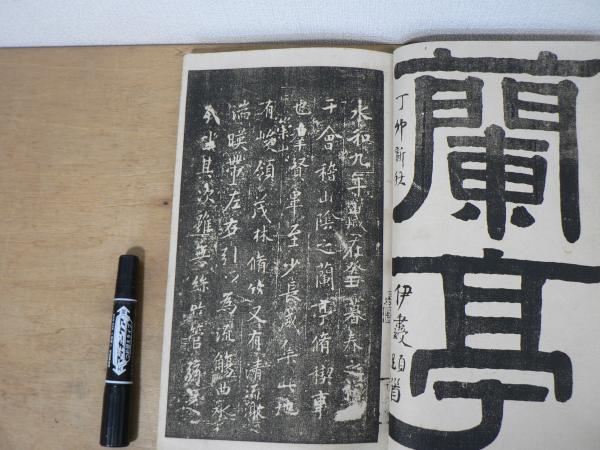 蘭亭
丁卯
伊
題
永和九年歲在癸丑暮春之初會
于會稽山陰之蘭亭脩稧事
也羣賢畢至少長咸集此地
有崇山峻領茂林脩竹又有清流激
湍暎帶左右引以為流觴曲水
列坐其次雖無絲竹管弦之